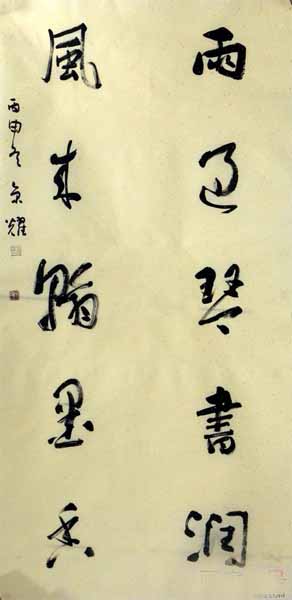 雨過琴書潤
風來翰墨香
丙申冬 京耀